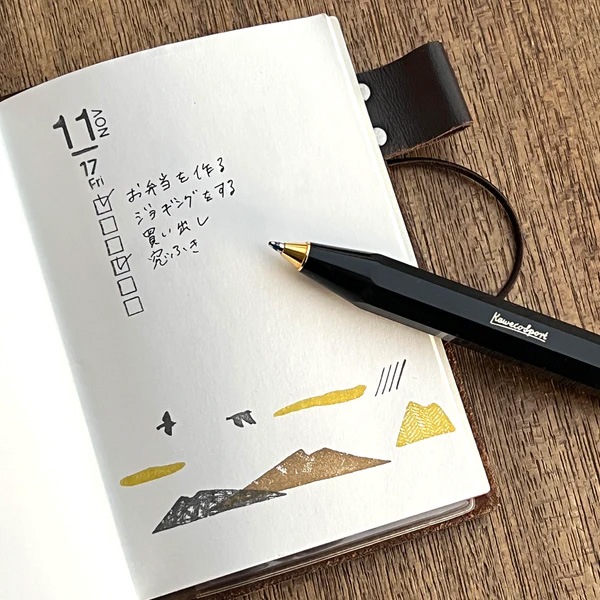 11
NOV
17
Fri
お弁当を作る
ジョギングをする
買い出し
窓ふき
Kaweco Sport